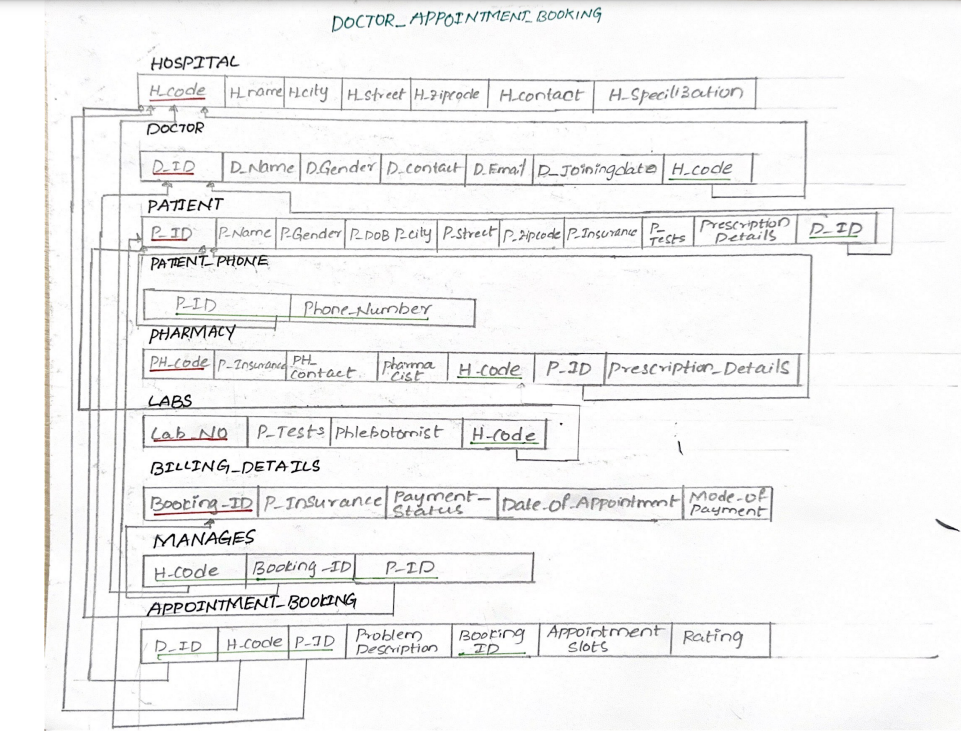 DOCTOR_APPOINTMENT_BOOKING
HOSPITAL
H_code H_name H_city H_street H_zipcode H_contact H_Specilization
DOCTOR
D_ID D_Name D_Gender D_contact D_Email D_Joiningdate H_code
PATIENT
P_ID P_Name P_Gender P_DOB P_city P_street P_zipcode P_Insurance P_Tests Prescription Details D_ID
PATIENT_PHONE
P_ID Phone_Number
PHARMACY
PH_code P_Insurance PH_contact pharmacist H_code P_ID Prescription_Details
LABS
Lab_NO P_Tests Phlebotomist H_code
BILLING_DETAILS
Booking_ID P_Insurance Payment_Status Date_of_Appointment Mode_of Payment
MANAGES
H_code Booking_ID P_ID
APPOINTMENT_BOOKING
D_ID H_code P_ID Problem Description Booking ID Appointment Slots Rating